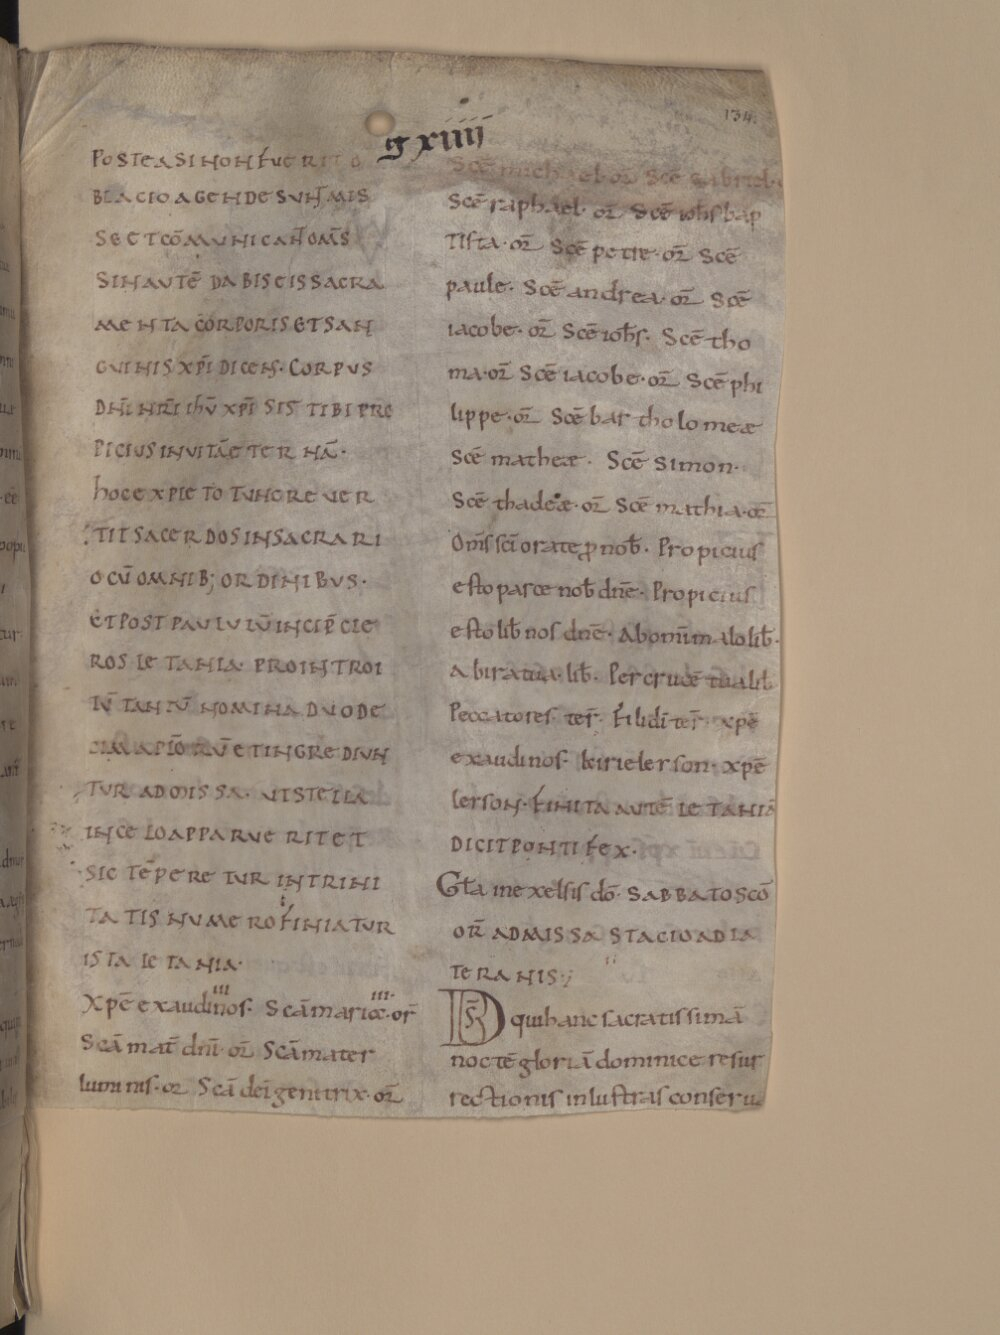 134.
g xiiii
POSTEA SI NON FUERIT O
BLACIO AGENDE SUN̄ MIS
SE ET CŌMUNICAN̄ OM̄S
SIN AUTĒ DABIS EIS SACRA
MENTA CORPORIS ET SAN
GUINIS XP̄I DICENS· CORPUS
DN̄I NR̄I IHŪ XP̄I SIS TIBI PRO
PICIUS IN VITĀ ETERNĀ·
hOC EXPLETO TUNC REVER
TIT SACERDOS IN SACRARI
O CŪ OMNIB; ORDINIBUS·
ET POST PAULULŪ INCIP̄ CLE
ROS LETANIA PRO INTROI
TŪ TANTŪ NOMINA DUODE
CIM AP̄LŌRŪ ET INGREDIUN
TUR AD MISSA· UT STELLA
IN CELO APPARUERIT ET
SIC TĒPERETUR IN TRINI
TATIS NUMERO FINIATUR
ISTA LETANIA·
Xpē exaudi nos· iii Scā mariæ· iii· or̄
Scā mat̄ dnī· or̄ Scā mater
luminis· or̄ Scā dei genitrix· or̄
Scē michaæl· or̄ Scē gabriel·
Scē raphael· or̄ Scē ioh̄s bap
tista· or̄ Scē petre· or̄ Scē
paule· Scē andrea· or̄ Scē
iacobe· or̄ Scē ioh̄s· Scē tho
ma· or̄ Scē iacobe· or̄ Scē phi
lippe· or̄ Scē bartholomeæ
Scē matheæ· Scē simon·
Scē thadeæ· or̄ Scē mathia· or̄
Om̄s sc̄i orate p nob̄· Propicius
esto parce nob̄ dnē· Propicius
esto lib̄ nos dnē· Ab om̄i malo lib̄·
Ab ira tua· lib̄· Per crucē tuā lib̄
Peccatores ter̄· Fili dī ter̄· xpē
exaudi nos· kirieleison· xpē
leison· FINITA AUTĒ LETANIA
DICIT PONTIFEX·
Gl̄a in excelsis dō· SABBATO SCŌ
OR̄ AD MISSA STACIO AD LA
TERANIS·;
D̄S qui hanc sacratissimā
noctē gloriā dominice resur
rectionis inlustras conserua